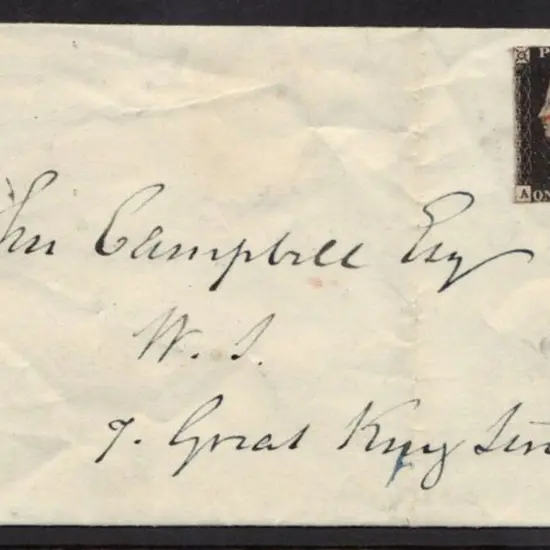 P
A ON
Jhn Campbell Esq
W. S.
7. Great King Stre